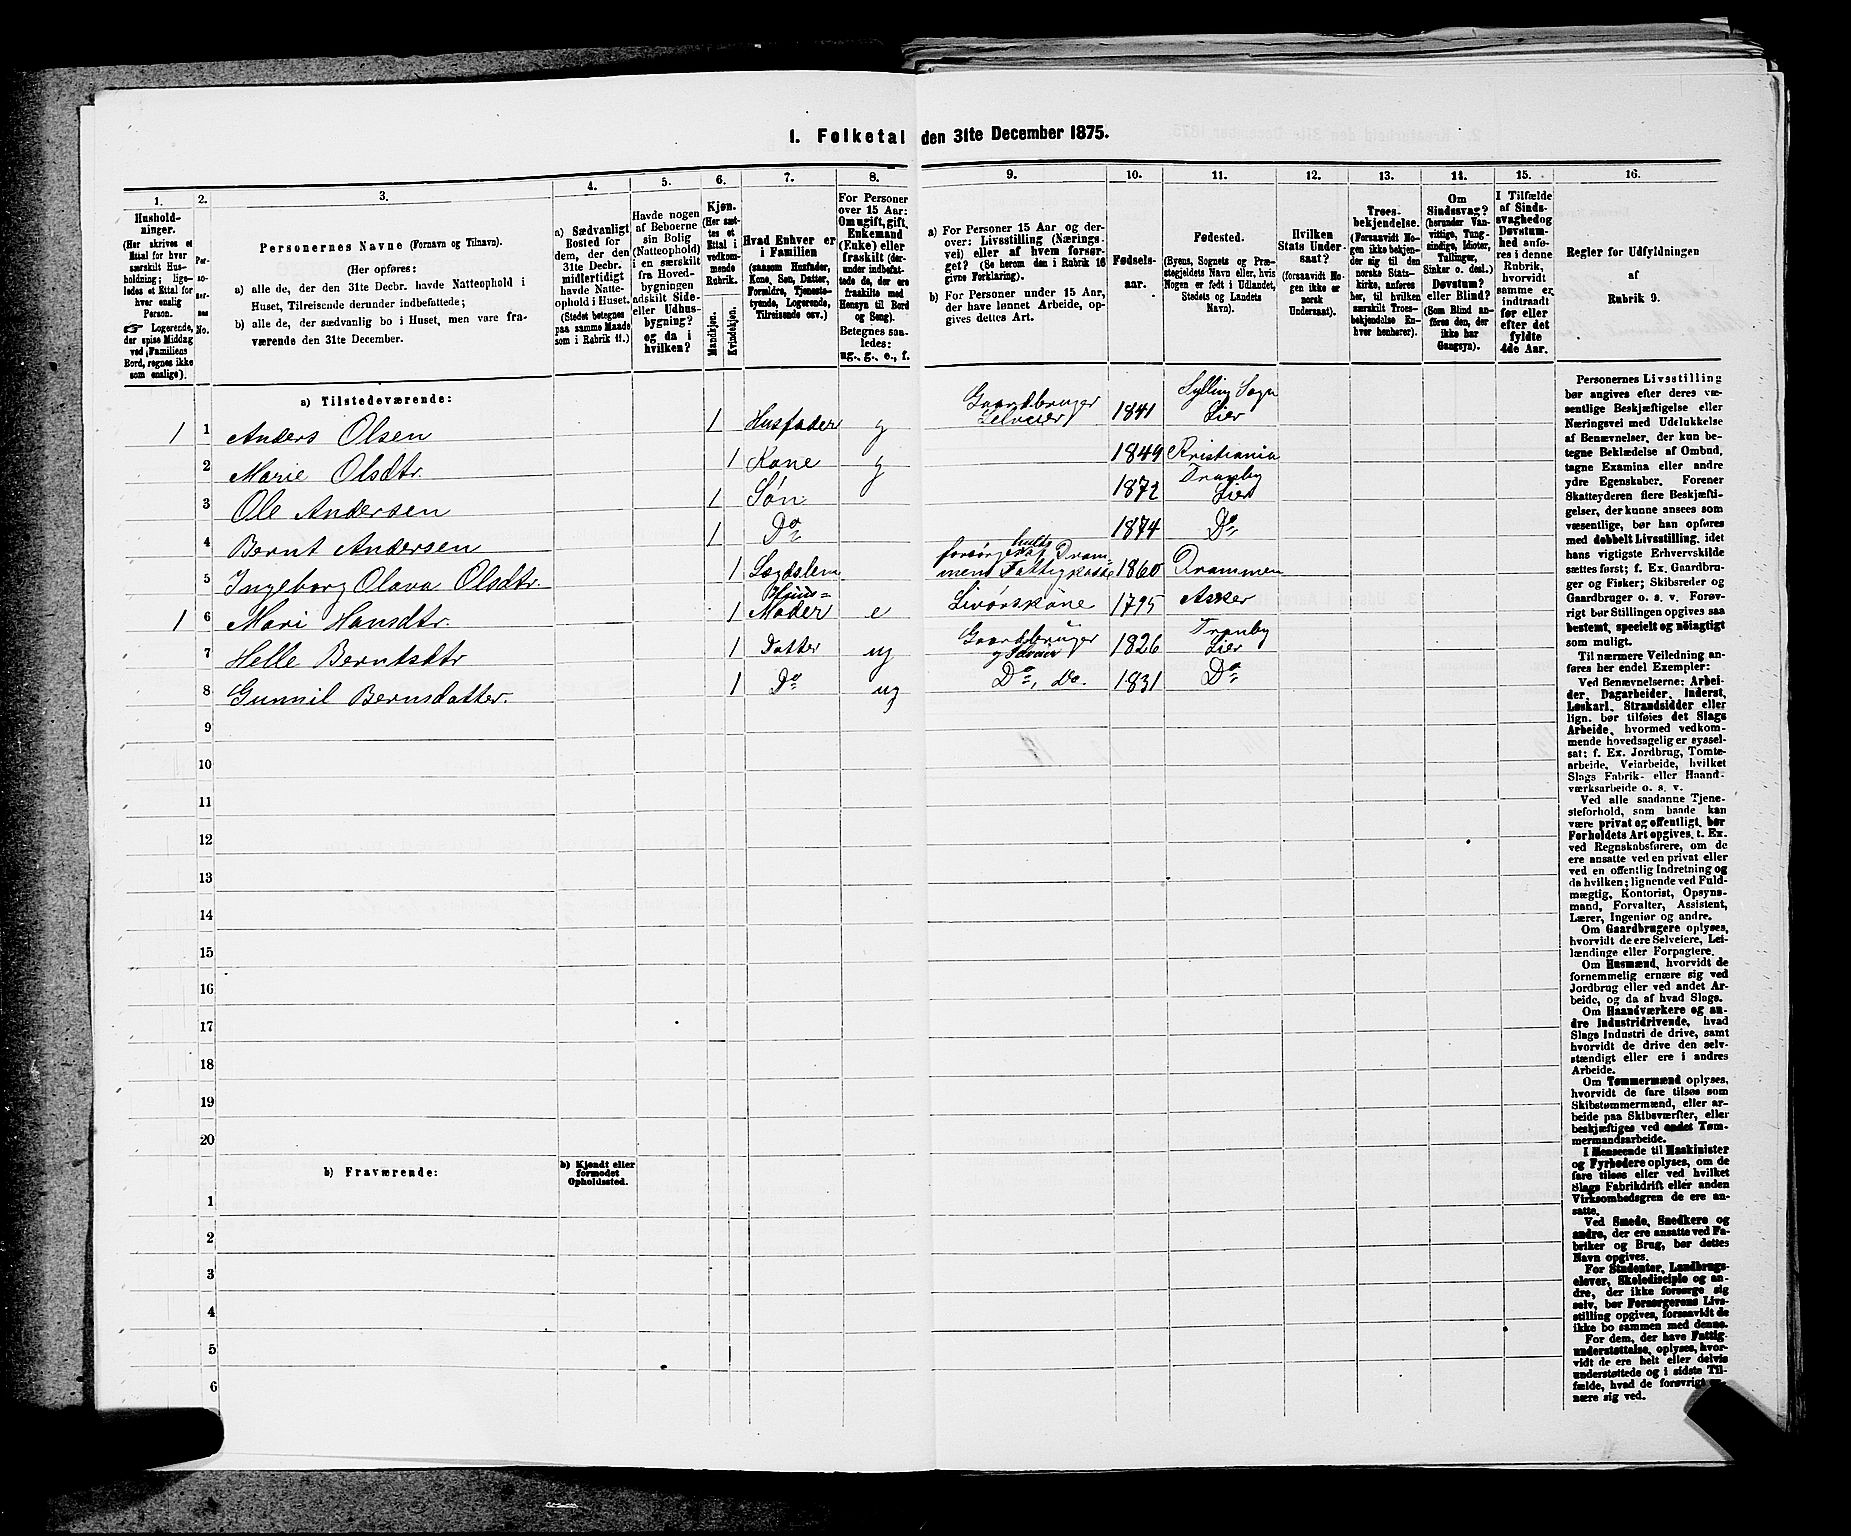 1. Folketal den 31te December 1875.
1. 2. 3. 4. 5. 6. 7. 8. 9. 10. 11. 12. 13. 14. 15. 16.
Hushold-
ninger.
(Her skrives et
Ettal for hver
særskilt Hus-
holdning; lige-
ledes et Ettal for
hver enslig
Person.
☞ Logerende,
der spise Middag
ved Familiens
Bord, regnes ikke
som enslige).
No.
Personernes Navne (Fornavn og Tilnavn).
(Her opføres:
a) alle de, der den 31te Decbr. havde Natteophold i
Huset, Tilreisende derunder indbefattede;
b) alle de, der sædvanlig bo i Huset, men vare fra-
værende den 31te December.
a) Sædvanligt
Bosted for
dem, der den
31te Decbr.
midlertidigt
havde Natte-
ophold i Huset.
(Stedet betegnes
paa samme Maade
som i Rubrik 11.)
Havde nogen
af Beboerne
sin Bolig
(Natteophold)
i en særskilt
fra Hoved-
bygningen
adskilt Side-
eller Udhus-
bygning?
og da i
hvilken?
Kjøn.
(Her sæt-
tes et
Ettal i
vedkom-
mende
Rubrik.
Mandkjøn.
Kvindekjøn.
Hvad Enhver er
i Familien
(saasom Husfader,
Kone, Søn, Datter,
Forældre, Tjeneste-
tyende, Logerende,
Tilreisende osv.)
For Personer
over 15 Aar:
Om ugift, gift,
Enkemand
(Enke) eller
fraskilt (der-
under indbefat-
tede de, der ere
fraskilte med
Hensyn til Bord
og Seng).
Betegnes saa-
ledes:
ug., g., e., f.
a) For Personer 15 Aar og der-
over: Livsstilling (Nærings-
vei) eller af hvem forsør-
get? (Se herom den i Rubrik 16
givne Forklaring).
b) For Personer under 15 Aar,
der have lønnet Arbeide, op-
gives dettes Art.
Fødsels-
aar.
Fødested.
(Byens, Sognets og Præ-
stegjeldets Navn eller, hvis
Nogen er født i Udlandet,
Stedets og Landets
Navn).
Hvilken
Stats Under-
saat?
(forsaavidt No-
gen ikke er
norsk
Undersaat).
Troes-
bekjendelse.
(Forsaavidt No-
gen ikke bekjen-
der sig til den
norske Stats-
kirke, anføres
her, til hvilken
særskilt Troes-
bekjendelse En-
hver henhører).
Om
Sindssvag?
(herunder Van-
vittige, Tung-
sindige, Idioter,
Tullinger,
Sinker o. desl.)
Døvstum?
eller Blind?
(Som Blind an-
føres den, der
ikke har
Gangsyn).
I Tilfælde
af Sinds-
svaghed og
Døvstum-
hed anfø-
res i denne
Rubrik,
hvorvidt
samme er
indtraadt
før eller
efter det
fyldte
4de Aar.
Regler for Udfyldningen
af
Rubrik 9.
a) Tilstedeværende:
1 1 Anders Olsen 1 Husfader g Gaardbruger Selveier 1841 Sylling Sogn Lier
2 Marie Olsdtr. 1 Kone g 1849 Kristiania
3 Ole Andersen 1 Søn 1872 Tranby Lier
4 Bernt Andersen 1 Do 1874 Do
5 Ingeborg Olava Olsdtr. 1 Lægdslem forsørges af Drammens Fattigkasse 1860 Drammen
1 6 Mari Hansdtr. 1 Moder e Livørskone 1795 Asker
7 Helle Berntsdtr 1 Datter ug Gaardbruger 1826 Tranby Lier
8 Gunnil Bernsdatter. 1 Do ug Do, Do. 1831 Do
9
10
11
12
13
14
15
16
17
18
19
20
b) Fraværende:
b) Kjendt eller
formodet
Opholdssted.
1
2
3
4
5
6
Personernes Livsstilling
bør angives efter deres væ-
sentlige Beskjæftigelse eller
Næringsvei med Udelukkelse
af Benævnelser, der kun be-
tegne Beklædelse af Ombud,
tagne Examina eller andre
ydre Egenskaber. Forener
Skatteyderen flere Beskjæfti-
gelser, der kunne ansees som
væsentlige, bør han opføres
med dobbelt Livsstilling, idet
hans vigtigste Erhvervskilde
sættes først; f. Ex. Gaardbru-
ger og Fisker; Skibsreder og
Gaardbruger o. s. v. Forøv-
rigt bør Stillingen opgives saa
bestemt, specielt og nöiagtigt
som muligt.
Til nærmere Veiledning an-
føres her endel Exempler:
Ved Benævnelserne: Arbei-
der, Dagarbeider, Inderst,
Løskarl, Strandsidder eller
lign. bør tilføies det Slags
Arbeide, hvormed vedkom-
mende hovedsagelig er syssel-
sat; f. Ex. Jordbrug, Tomte-
arbeide, Veiarbeide, hvilket
Slags Fabrik- eller Haand-
værksarbeide o. s. v.
Ved alle saadanne Tjene-
steforhold, som baade kan
være privat og offentligt, bør
Forholdets Art opgives, t. Ex.
ved Regnskabsførere, om de
ere ansatte ved en privat eller
ved en offentlig Indretning og
da hvilken; lignende ved Fuld-
mægtig, Kontorist, Opsyns-
mand, Forvalter, Assistent,
Lærer, Ingeniør og andre.
Om Gaardbrugere oplyses,
hvorvidt de ere Selveiere, Lei-
lændinge eller Forpagtere.
Om Husmænd, hvorvidt de
fornemmelig ernære sig ved
Jordbrug eller ved andet Ar-
beide, og da af hvad Slags.
Om Haandværkere og an-
dre Industridrivende, hvad
Slags Industri de drive, samt
hvorvidt de drive den selv-
stændigt eller ere i andres
Arbeide.
Om Tømmermænd oplyses,
hvorvidt de fare tilsøs som
Skibstømmermænd, eller ar-
beide paa Skibsværfter, eller
beskjæftiges ved andet Tøm-
mermandsarbeide.
I Henseende til Maskinister
og Fyrbødere oplyses, om de
fare tilsøs eller ved hvilket
Slags Fabrikdrift eller anden
Virksomhedsgren de ere an-
satte.
Ved Smede, Snedkere og
andre, der ere ansatte ved Fa-
briker og Brug, bør dettes
Navn opgives.
For Studenter, Landbrugs-
elever, Skoledisciple og an-
dre, der ikke forsørge sig
selv, bør Forsørgerens Livs-
stilling opgives, forsaavidt de
ikke bo sammen med denne.
For dem, der have Fattig-
understøttelse, oplyses, hvor-
vidt de ere helt eller delvis
understøttede og i sidste Til-
fælde, hvad de forøvrigt er-
nære sig ved.